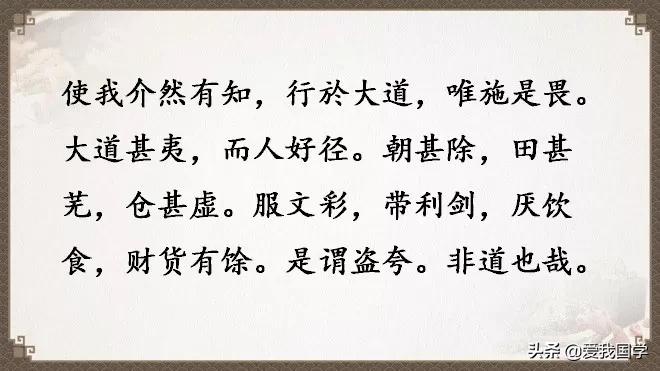 使我介然有知，行於大道，唯施是畏。
大道甚夷，而人好径。朝甚除，田甚
芜，仓甚虚。服文彩，带利剑，厌饮
食，财货有馀。是谓盗夸。非道也哉。
头条 @爱我国学